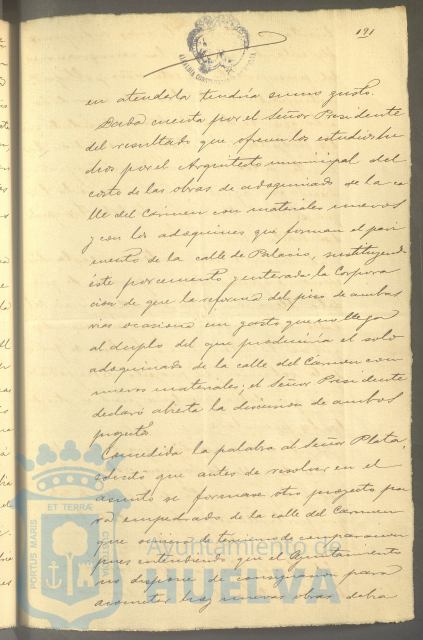 191
en atenderla tendría sumo gusto.
Dada cuenta por el Señor Presidente
del resultado que ofrecen los estudios he
chos por el Arquitecto municipal del
costo de las obras de adoquinado de la ca
lle del Cármen con materiales nuevos
y con los adoquines que forman el pavi
mento de la calle de Palacio, sustituyendo
éste por cemento y enterada la Corpora
cion de que la reforma del piso de ambas
vias ocasiona un gasto que no llega
al duplo del que produciria el solo
adoquinado de la calle del Cármen con
nuevos materiales; el Señor Presidente
declaró abierta la discusion de ambos
proyectos.
Concedida la palabra al Señor Plata,
solicitó que antes de resolver en el
asunto se formase otro proyecto pa
ra empedrado de la calle del Cármen
que sirviera de término de comparacion
pues entendiendo que el Ayuntamiento
no dispone de consignacion para
acometer hoy nuevas obras, debia
PORTUS MARIS
ET TERRÆ
CUSTODIA
Ayuntamiento de
HUELVA